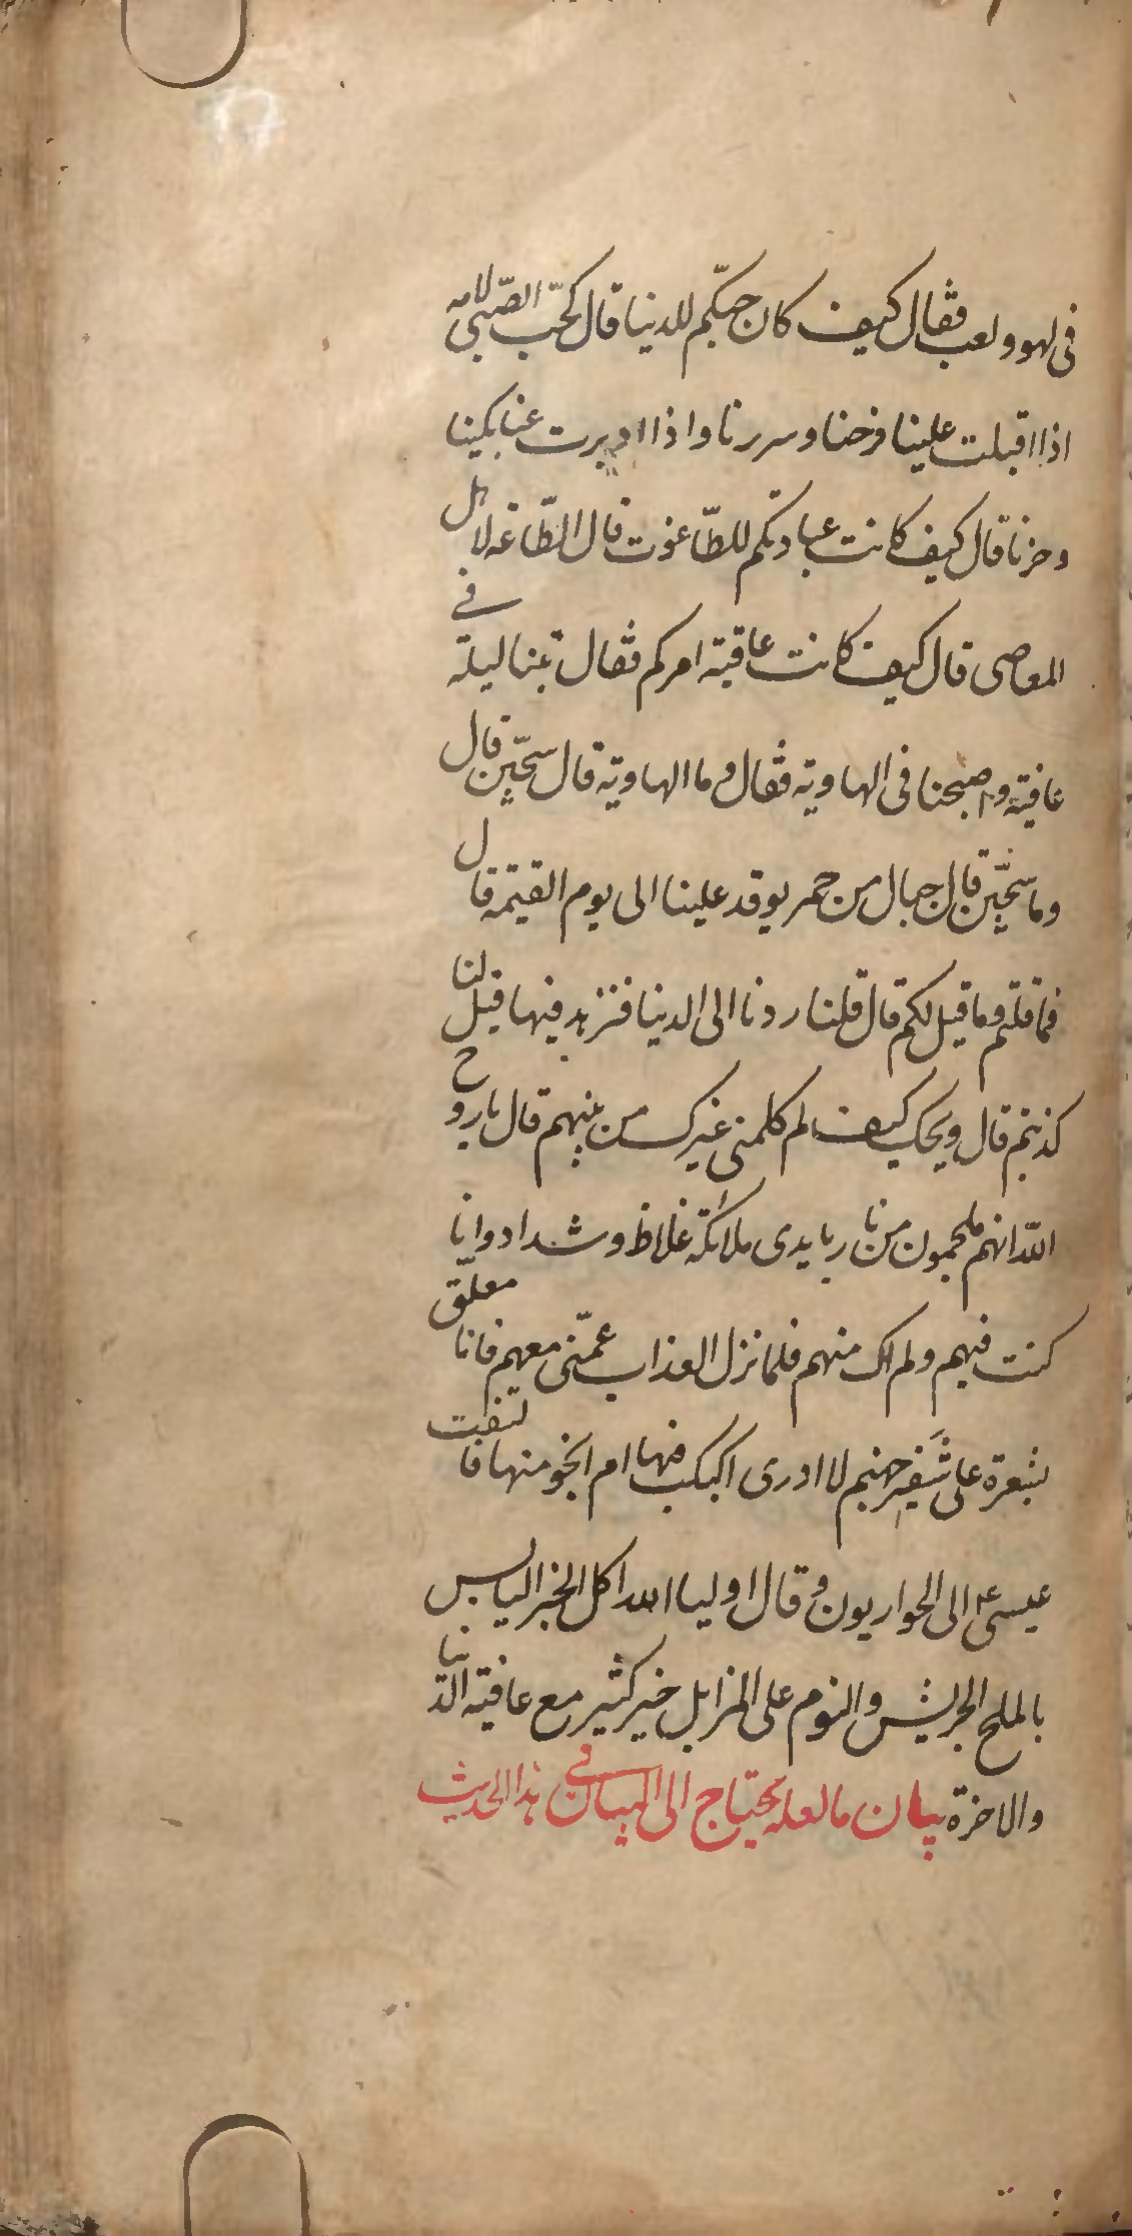 فى لهو ولعب فقال كيف كان حبّكم للدنيا قال كحّب الصّبى لامه
اذا اقبلت علينا فرحنا وسررنا واذا ادبرت عنا بكينا
وحزنا قال كيف كانت عبادتكم للطّاغوت قال الطّاغه لاهل
المعاصى قال كيف كانت عاقبة امركم فقال بتنا ليلة فى
عافية واصبحنا فى الهاوية فقال وما الهاوية قال سجّين قال
وما سجّين قال جبال من جمر يوقد علينا الى يوم القيمة قال
فما قلتم وما قيل لكم قال قلنا ردنا الى الدنيا فنزهد فيها قيل لنا
كذبتم قال ويحك كيف لم كلمنى غيرك من بينهم قال يا روح
اللّه انهم ملجمون من نار بايدى ملائكة غلاظ وشداد وانا
كنت فيهم ولم اك منهم فلما نزل العذاب عمّنى معهم فانا معلّق
بشعرة على شَفير جهنم لا ادرى اكبكب فيها ام انجو منها فالتفت
عيسى ع الى الحواريون وقال اوليا الله اكل الخبز اليابس
بالملح الجريش والنوم على المزابل خير كثير مع عافية الدّنيا
والاخرة بيان ما لعله يحتاج الى البيان فى هذا الحديث